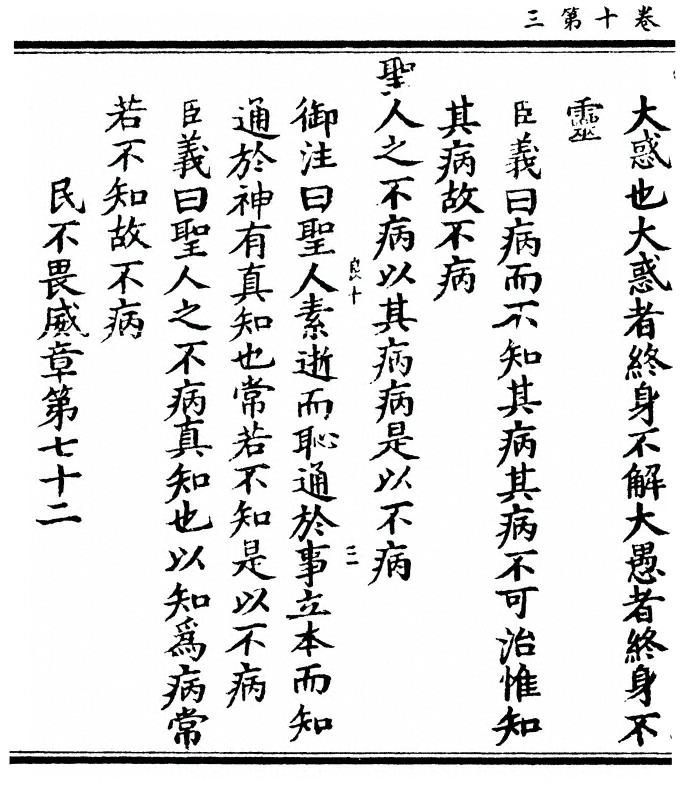 三第十卷
大惑也大惑者終身不解大愚者終身不
靈
臣義曰病而不知其病其病不可治惟知
其病故不病
聖人之不病以其病病是以不病
良十
三一
御注曰聖人素逝而恥通於事立本而知
通於神有真知也常若不知是以不病
臣義曰聖人之不病真知也以知爲病常
若不知故不病
民不畏威章第七十二